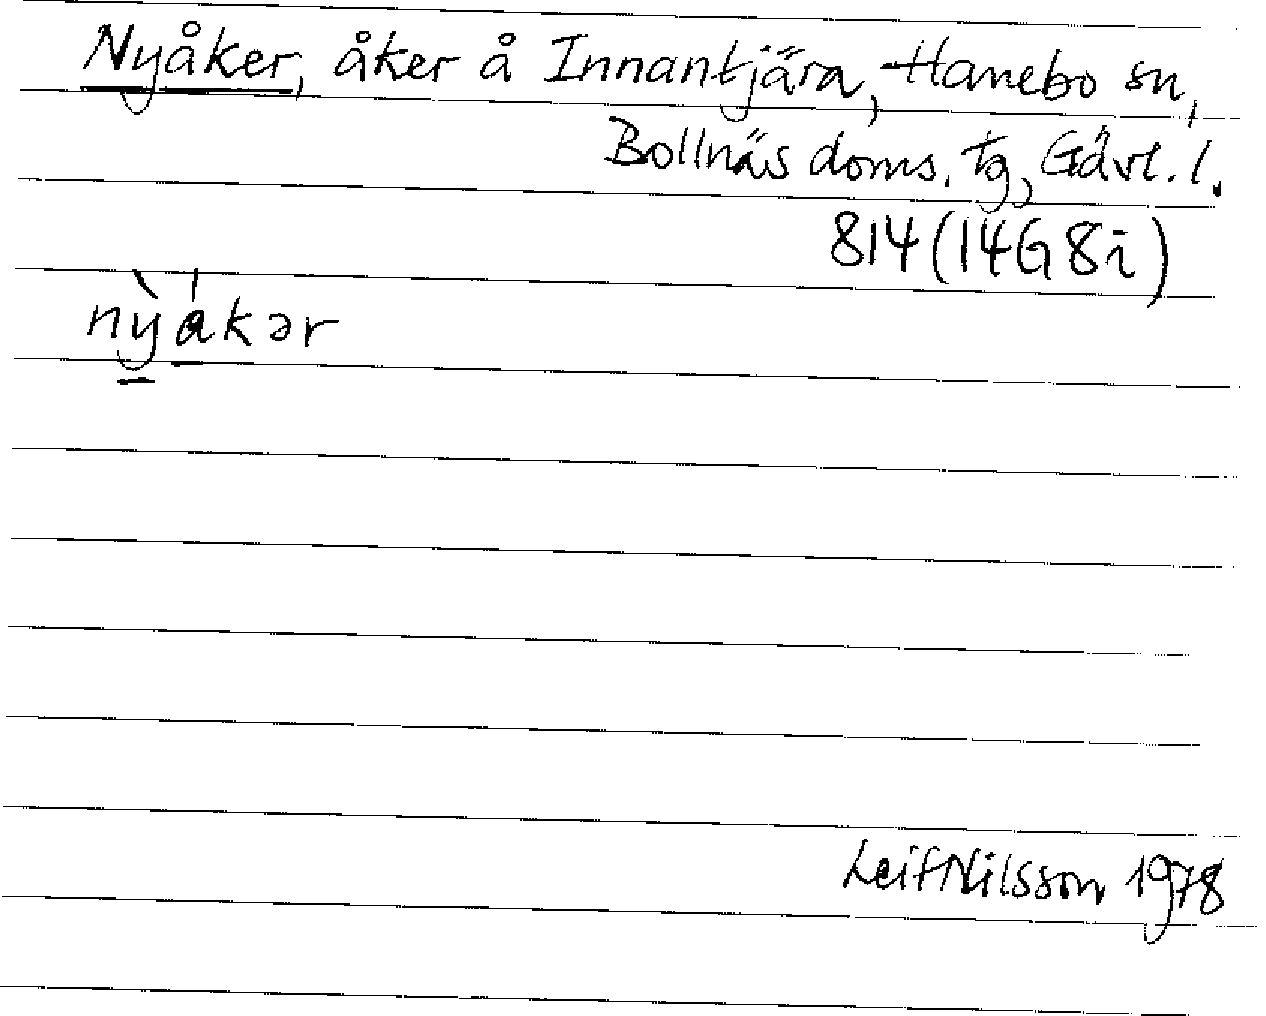 Nyåker, åker å Innantjära, Hanebo sn,
Bollnäs doms. tg, Gävl. l.
814 (14G 8i)
nỳákər
Leif Nilsson 1978